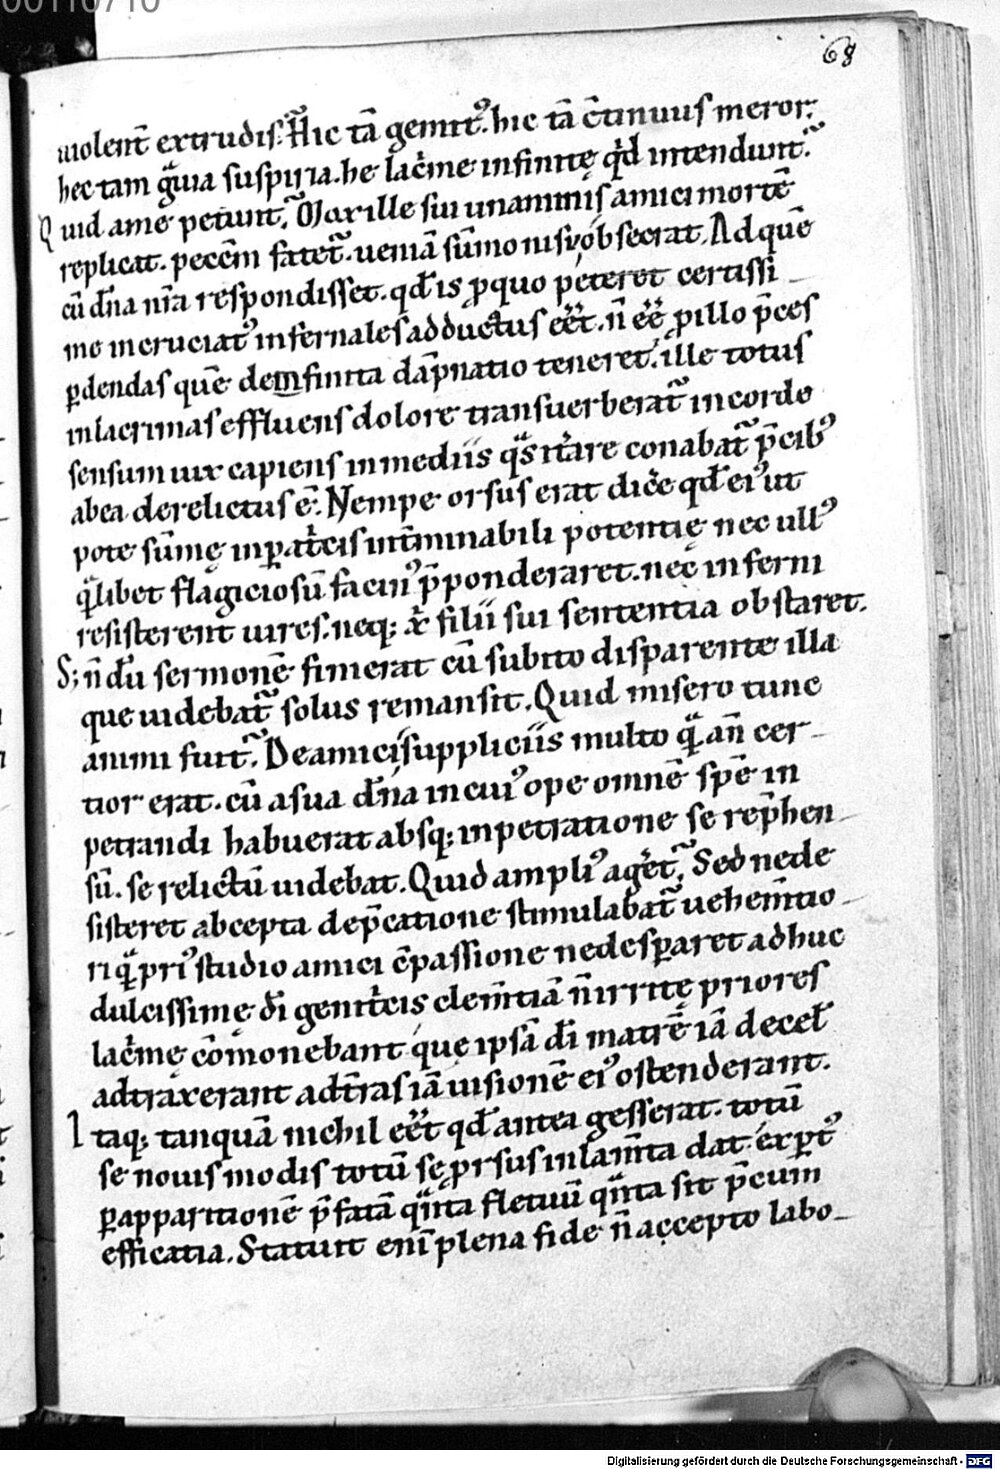 00110710
68
uiolent̄ extrudis. Hic tā gemit᷒. hic tā c̄tinuus meror.
hec tam gͣuia suspiria. he lac̄me infinitę qͥd intendunt.
Quid a me petunt. Mox ille sui unanimis amici mortē
replicat. peccm̄ fatet᷑. ueniā sūmo nisu obsecrat. Ad quē
cū dn̄a nr̄a respondisset. qd̄ is ꝓ quo peteret certissi
me in cruciat᷒ infernales adductus eēt. n̄ eē ꝓ illo p̄ces
ꝑdendas quē dem infinita dāpnatio teneret. ille totus
in lacrimas effluens dolore transuerberat᷑ in corde
sensum uix capiens in mediis qͣs iťare conabat᷑ p̄cib᷒
ab ea derelictus ē. Nempe orsus erat dic̄e qd̄ ei᷒ ut
pote sūmę inꝑatͥcis int̄minabili potentię nec ull᷒
qͣlibet flagiciosū facin᷒ p̄ponderaret. nec inferni
resisterent uires. neq; xͥ filii sui sententia obstaret.
S; n̄dū sermonē finierat cū subito disparente illa
que uidebat᷑ solus remansit. Quid misero tunc
animi fuit. De amici suppliciis multo qͣ an̄ cer
tior erat. cū a sua dn̄a in cui᷒ ope omnē spē in
petrandi habuerat absq; inpetratione se rep̄hen
sū. se relictū uidebat. Quid ampli᷒ aget᷑. Sed ne de
sisteret ab cepta dep̄catione stimulabat᷑ uehem̄tio
ri qͣ pri᷒ studio amici c̄passione ne desꝑaret adhuc
dulcissimę dī genitͥcis clem̄tiā n̄ irritę priores
lac̄mę cōmonebant que ipsā dī matrē iā de cel̄
adtraxerant ad t̄ras iā uisionē ei᷒ ostenderant.
Itaq; tanquā nichil eēt qd̄ antea gesserat. totū
se nouis modis totū se ꝓrsus in lam̄ta dat. exꝑt᷒
ꝑ apparitionē p̄fatā qͣnta fletuū qͣnta sit p̄cum
efficatia. Statuit eni plena fide n̄ accepto labo
Digitalisierung gefördert durch die Deutsche Forschungsgemeinschaft - DFG